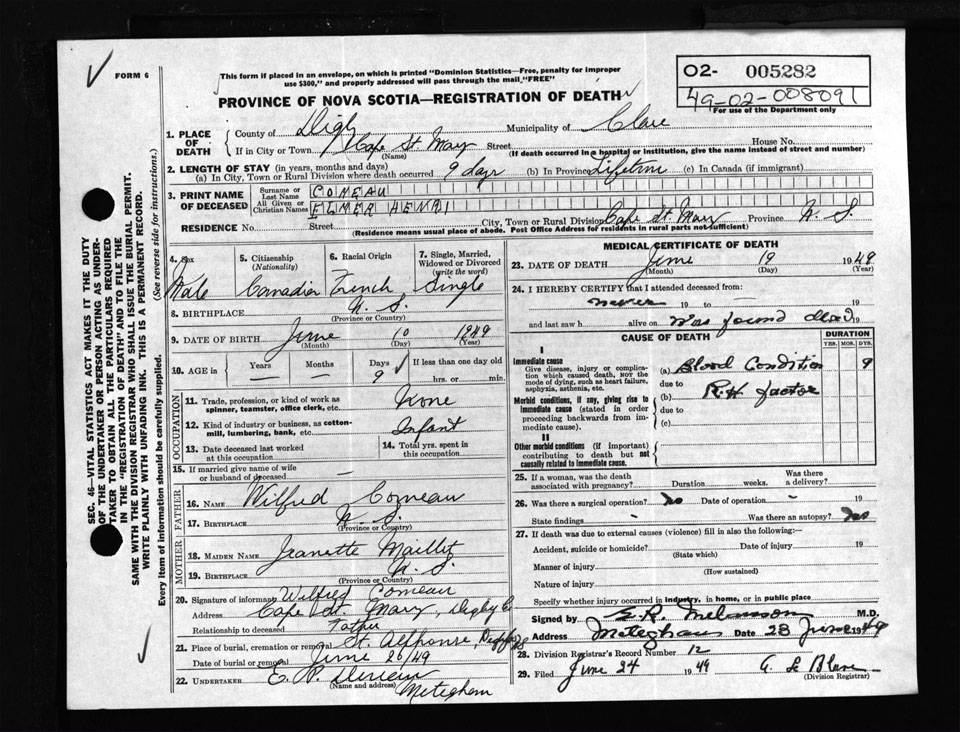 FORM 6
This form if placed in an envelope, on which is printed "Dominion Statistics—Free, penalty for improper
use $300," and properly addressed will pass through the mail "FREE"
02- 005282
49-02-008091
For use of the Department only
PROVINCE OF NOVA SCOTIA—REGISTRATION OF DEATH
1. PLACE OF DEATH
County of Digby Municipality of Clare
If in City or Town Cape St Mary Street House No.
(Name) (If death occurred in a hospital or institution, give the name instead of street and number)
2. LENGTH OF STAY (in years, months and days)
(a) In City, Town or Rural Division where death occurred 9 days (b) In Province Lifetime (c) In Canada (if immigrant)
3. PRINT NAME OF DECEASED
Surname or Last Name COMEAU
All Given or Christian Names ELMER HENRI
RESIDENCE No. Street City, Town or Rural Division Cape St. Mary Province N. S.
(Residence means usual place of abode. Post Office Address for residents in rural parts not sufficient)
4. Sex
Male
5. Citizenship
(Nationality)
Canadian
6. Racial Origin
French
7. Single, Married,
Widowed or Divorced
(write the word)
Single
8. BIRTHPLACE N. S.
(Province or Country)
9. DATE OF BIRTH June 10 1949
(Month) (Day) (Yr.)
10. AGE in Years Months Days If less than one day old
— 9 hrs. or min.
OCCUPATION
11. Trade, profession, or kind of work as
spinner, teamster, office clerk, etc. None
12. Kind of industry or business, as cotton-
mill, lumbering, bank, etc. Infant
13. Date deceased last worked
at this occupation
14. Total yrs. spent in
this occupation
15. If married give name of wife
or husband of deceased —
FATHER
16. NAME Wilfred Comeau
17. BIRTHPLACE N. S.
(Province or Country)
MOTHER
18. MAIDEN NAME Jeanette Maillet
19. BIRTHPLACE N. S.
(Province or Country)
20. Signature of informant Wilfred Comeau
Address Cape St. Mary, Digby Co.
Relationship to deceased Father
21. Place of burial, cremation or removal St. Alphonse,
Date of burial or removal June 20/49
22. UNDERTAKER E. P.
(Name and address) Meteghan
MEDICAL CERTIFICATE OF DEATH
23. DATE OF DEATH June 19 1949
(Month) (Day) (Yr.)
24. I HEREBY CERTIFY that I attended deceased from:
never 19 to — 19
and last saw h alive on Was found dead 19
CAUSE OF DEATH
DURATION
YRS. MOS. DYS.
I
Immediate cause
Give disease, injury or complica-
tion which caused death, NOT the
mode of dying, such as heart failure,
asphyxia, asthenia, etc.
(a) Blood Condition 9
due to
Morbid conditions, if any, giving rise to
immediate cause (stated in order
proceeding backwards from im-
mediate cause).
(b) R.H factor
due to
(c)
II
Other morbid conditions (if important)
contributing to death but not
causally related to immediate cause.
25. If a woman, was the death
associated with pregnancy? Duration weeks. Was there
a delivery?
26. Was there a surgical operation? No Date of operation - 19
State findings - Was there an autopsy? No
27. If death was due to external causes (violence) fill in also the following:
Accident, suicide or homicide? Date of injury 19
(State which)
Manner of injury
(How sustained)
Nature of injury
Specify whether injury occurred in industry, in home, or in public place
Signed by E.R. Melanson M.D.
Address Meteghan Date 23 June 1949
28. Division Registrar's Record Number 12
29. Filed June 24 1949 A. Le Blanc
(Division Registrar)
SEC. 46—VITAL STATISTICS ACT MAKES IT THE DUTY
OF THE UNDERTAKER OR PERSON ACTING AS UNDER-
TAKER TO OBTAIN ALL THE PARTICULARS REQUIRED
IN THE "REGISTRATION OF DEATH" AND TO FILE THE
SAME WITH THE DIVISION REGISTRAR WHO SHALL ISSUE THE BURIAL PERMIT.
WRITE PLAINLY WITH UNFADING INK. THIS IS A PERMANENT RECORD.
Every item of information should be carefully supplied. (See reverse side for instructions.)